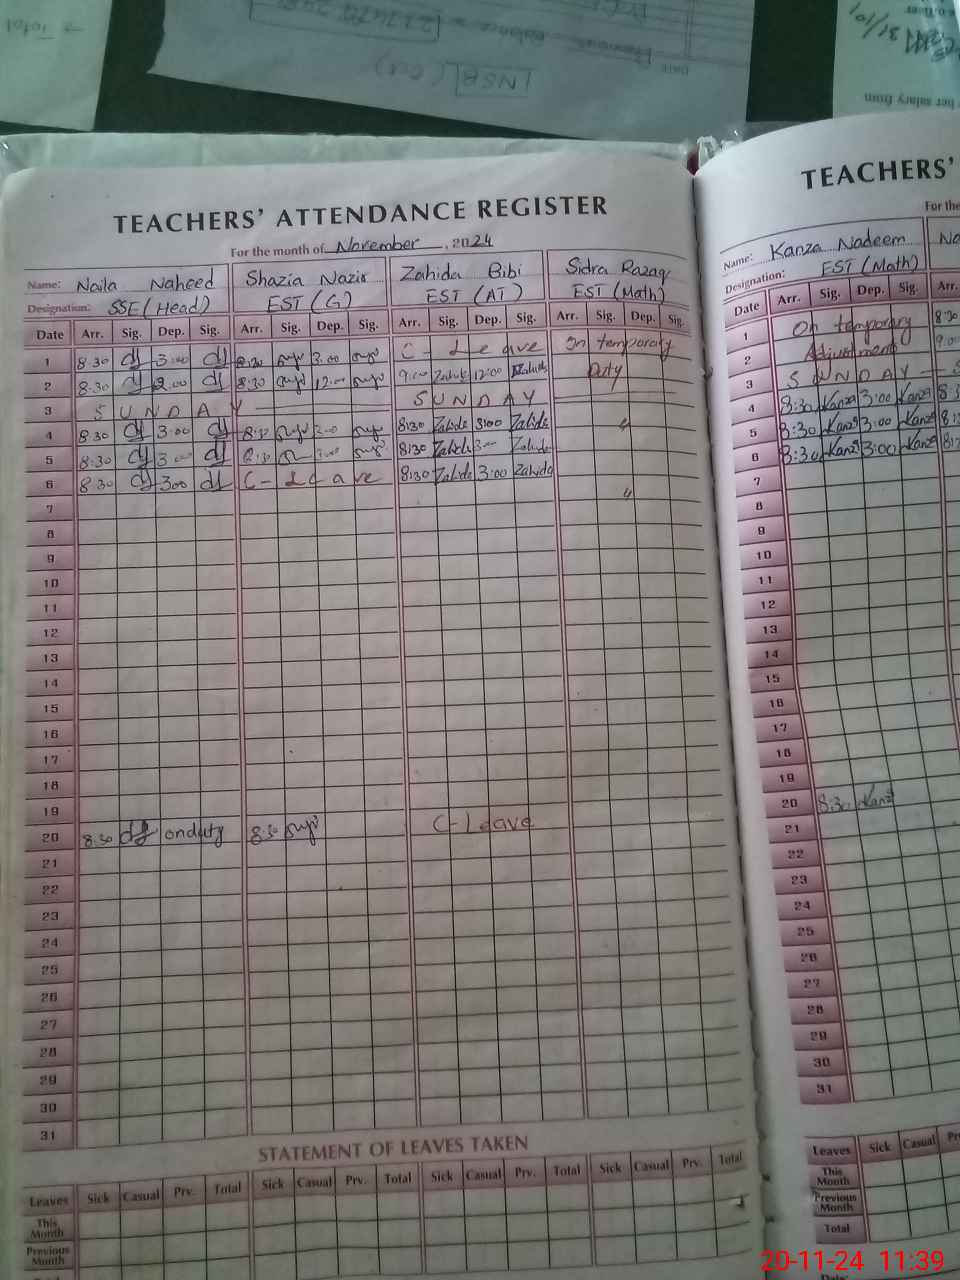 Total
NSB
DATE
31/10/
her salary from
TEACHERS' ATTENDANCE REGISTER
For the month of November, 2024
Name: Naila Naheed Shazia Nazir Zahida Bibi Sidra Razaq
Designation: SSE (Head) EST (G) EST (AT) EST (Math)
Date Arr. Sig. Dep. Sig. Arr. Sig. Dep. Sig. Arr. Sig. Dep. Sig. Arr. Sig. Dep. Sig.
1 8:30 3:00 8:30 3:00 C- Leave On temporary
2 8:30 12:00 8:30 12:00 9:00 Zahida 12:00 Zahida Duty
3 S U N D A Y S U N D A Y
4 8:30 3:00 8:30 3:00 8:30 Zahida 3:00 Zahida "
5 8:30 3:00 8:30 3:00 8:30 Zahida 3:00 Zahida
6 8:30 3:00 C- Leave 8:30 Zahida 3:00 Zahida "
7
8
9
10
11
12
13
14
15
16
17
18
19
20 8:30 onduty 8:30 C-Leave
21
22
23
24
25
26
27
28
29
30
31
STATEMENT OF LEAVES TAKEN
Leaves Sick Casual Prv. Total Sick Casual Prv. Total Sick Casual Prv. Total Sick Casual Prv. Total
This Month
Previous Month
TEACHERS'
For the
Name: Kanza Nadeem
Designation: EST (Math)
Date Arr. Sig. Dep. Sig. Arr.
1 On temporary 8:30
2 Adjustment 9:00
3 S U N D A Y S
4 8:30 Kanza 3:00 Kanza
5 8:30 Kanza 3:00 Kanza
6 8:30 Kanza 3:00 Kanza
7
8
9
10
11
12
13
14
15
16
17
18
19
20 8:30 Kanza
21
22
23
24
25
26
27
28
29
30
31
Leaves Sick Casual
This Month
Previous Month
Total
20-11-24 11:39